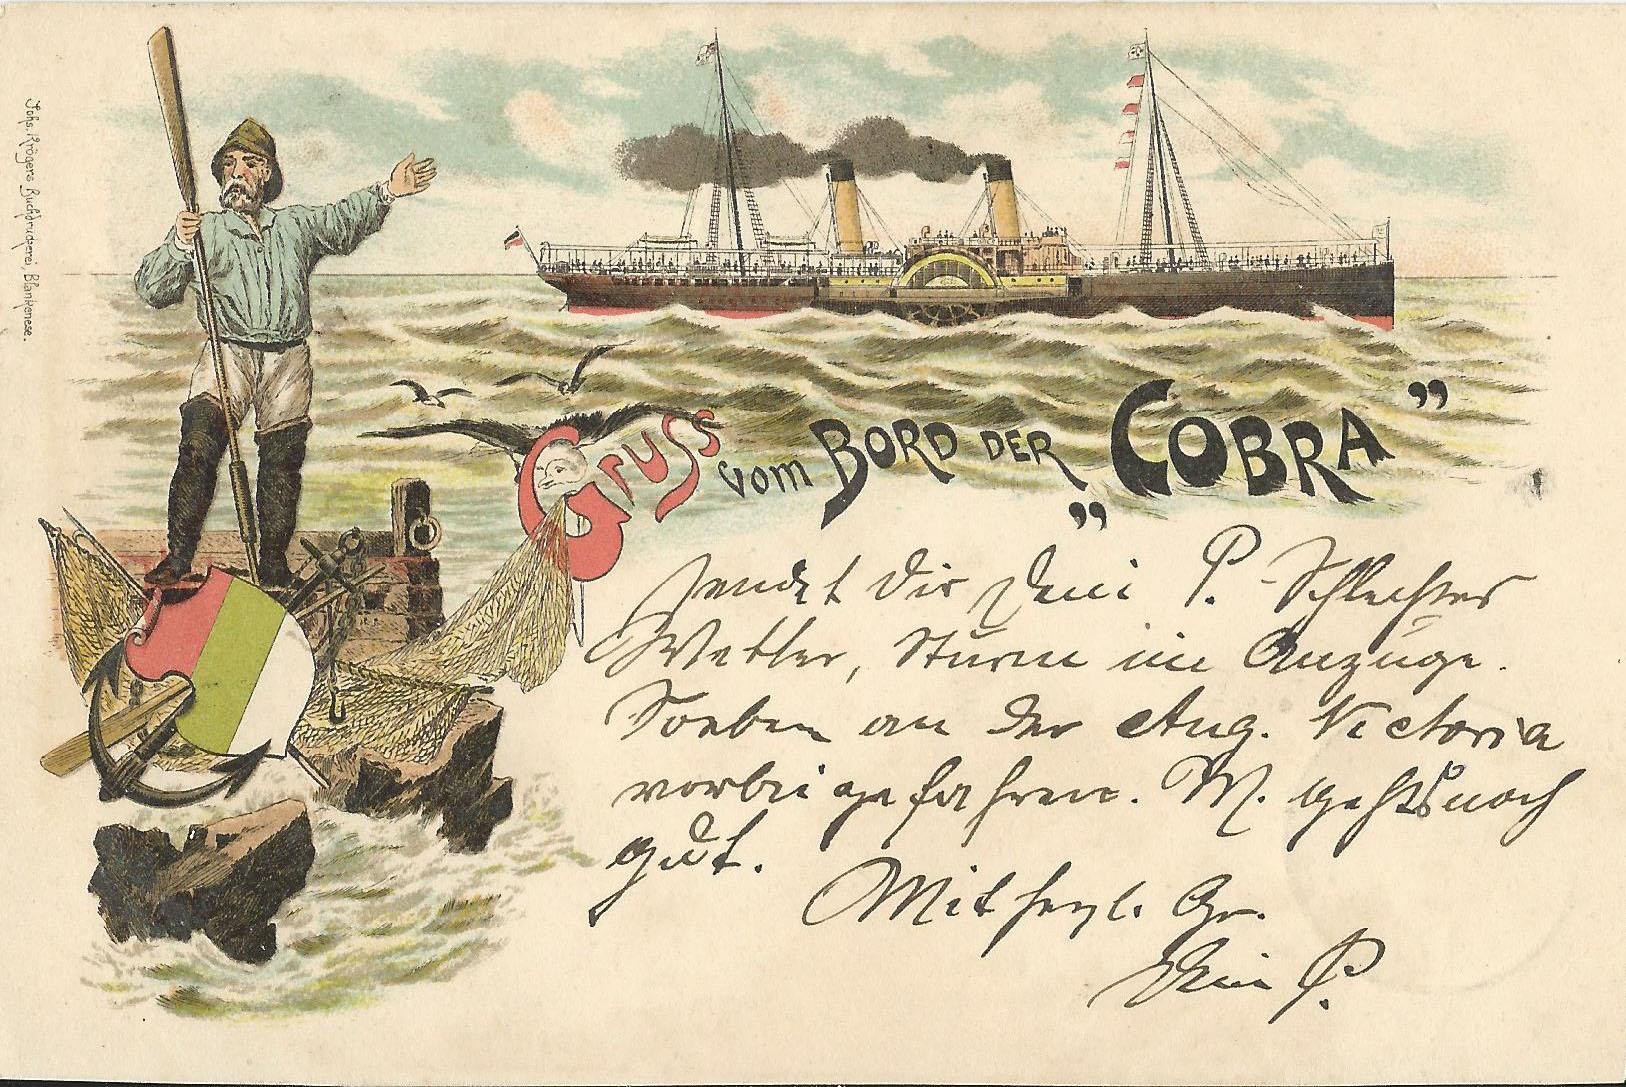 Johs. Krögers Buchdruckerei, Blankenese.
Gruss vom BORD DER „COBRA”
sendet dir Dein P. Schlechtes
Wetter, Sturm im Anzuge.
Soeben an der Aug. Victoria
vorbeigefahren. M. gehts noch
gut.
Mit herzl. Gr.
Dein P.